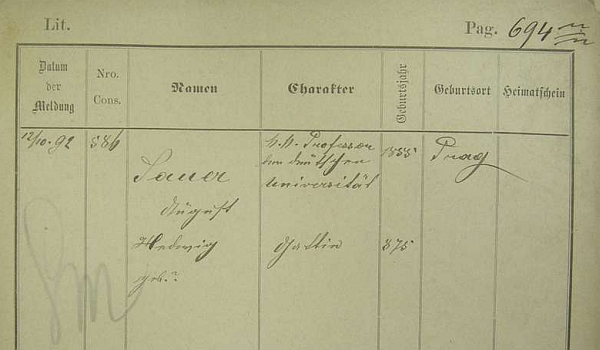 Lit. Pag. 694
Datum der Meldung Nro. Cons. Namen Charakter Geburtsjahr Geburtsort Heimatschein
12/10.92 586 Sauer k.k. Professor 1855 Prag
der deutschen
Universität
August
Hedwig Gattin 875
geb.